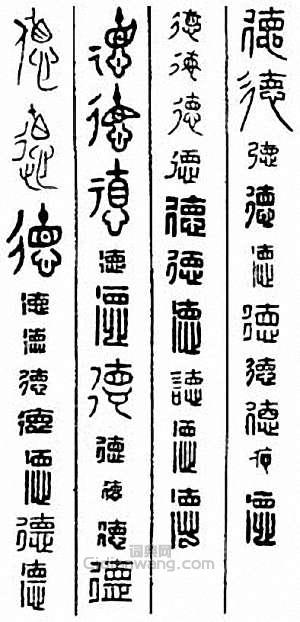 德德德德德德德德德德
德德德德德德德德德德
德德德德德德德德德德
德德德德德德德德德德
词典网
Cidianwang.com